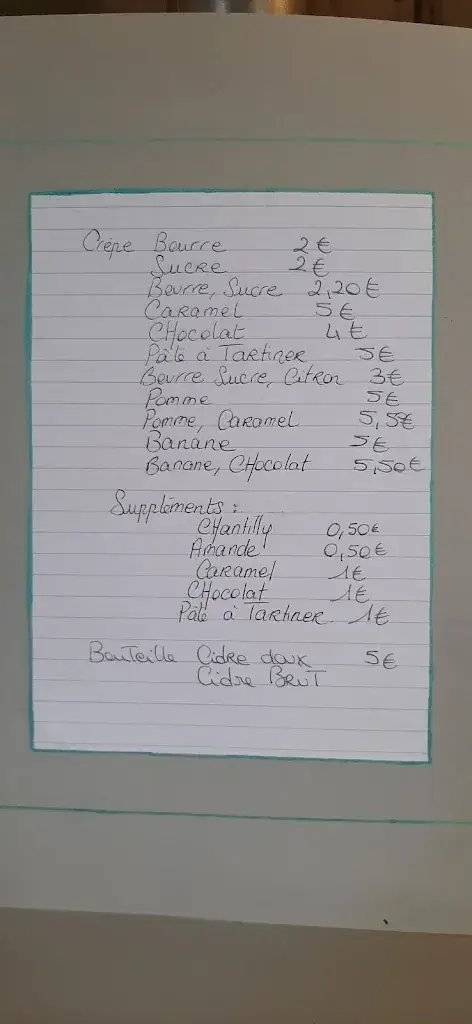 Crêpe Beurre 2€
Sucre 2€
Beurre, Sucre 2,20€
Caramel 5€
CHocolat 4€
Pâte à Tartiner 5€
Beurre Sucre, Citron 3€
Pomme 5€
Pomme, Caramel 5,5€
Banane 5€
Banane, CHocolat 5,50€
Suppléments :
CHantilly 0,50€
Amande 0,50€
Caramel 1€
CHocolat 1€
Pâte à Tartiner 1€
Bouteille Cidre doux 5€
Cidre BRUT